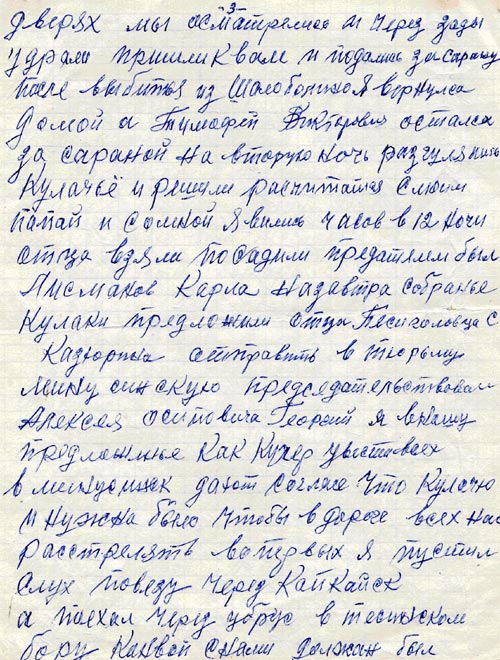 -3-
дверях мы остатремися и через зады
удрали пришли к вам и подались за сарану
После выбитья из Шалоболино я вернулса
домой а Тимофей Викторович осталса
за сараной на вторую ночь раздулились
Кулачьё и решили расчитатса с моим
папай и сомной явились часов в 12 ночи
отца взяли посадили предателем был
Лисманов Карла Назавтра собранье
Кулаки предложили отца Песиголовца С
Казюрина отправить в тюрьму
Минусинскую председательствовал
Алексея осиповича Георгий я внашу
предложенье Как Кучер увести всех
в минусинск дают согласе Что Кулачю
и нужна было чтобы в дороге всех нас
расстрелять вопервых я пустил
слух поведу через Капкайск
а поехал через убрус в тесинском
бору Канвой снами должан был